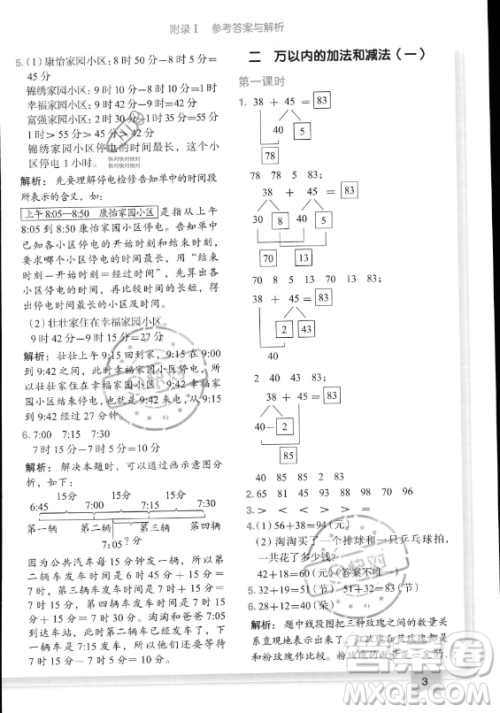 附录Ⅰ 参考答案与解析
5. (1) 康怡家园小区: 8时50分-8时5分=
45分
锦绣家园小区: 9时
幸福家园小区: 9时42分
富强家园小区:
1时>45分>42分
锦绣家园小区停电的时间最长, 这个小
区停电1小时。
解析: 先要理解停电检修告知单中的时间段
所表示的含义, 如:
上午8:05—8:50 康怡家园小区 是指从上午
8:05到8:50康怡家园小区停电。告知单中
已知每个小区停电的开始时刻和结束时刻,
要求哪个小区停电的时间最长, 用“结束
时刻-开始时刻=经过时间”, 先算出各
小区停电的时间, 再比较。
(2) 壮壮家住在幸福家园小区。
9时42分-9时15分=27分
解析: 壮壮上午9:15回到家, 9:15在9:00
至9:42之间, 此时幸福家园小区停电, 所
以壮壮家住在幸福家园小区。从9:15到
9:42经过27分钟。
6. 7:00 7:15 7:30
7时15分-7时5分=10分
解析: 解决本题时, 可以通过画示意图分
析, 如下:
15分 15分 15分
6:45 7:00 7:15 7:30
第一辆 第二辆 第三辆 第四辆
7:05 ?分
因为公共汽车每15分钟发一辆车, 所以第
二辆车发车时间是6时45分+15分=7时,
第三辆车发车时间是7时+15分=7时
15分, 第四辆车发车时间是7时15分+
15分=7时30分。淘淘7:05到达车站, 此
时第二辆车已发车, 所以他最快可以坐上
第三辆车, 第三辆车的发车时间是7:15,
所以还要等7时15分-7时5分=10分。
二 万以内的加法和减法(一)
第一课时
1. 38 + 45 = 83
40 5
78
78 5 83
38 + 45 = 83
30 8 40 5
70 13
70 8 5 13 70 13 83
38 + 45 = 83
40- 2 43
83
2 40 43 83
38 + 45 = 83
40- 2
85
40 85 85 2 83
2. 65 81 51 83 67 75 63 96
3. >
4. (1) 56+38=94(元)
(2) 淘淘买了一个排球和一只乒乓球拍,
一共花了多少钱?
42+18=60(元) (答案不唯一)
5.
6. 28+12=40(朵)
解析: 题中线段图把三种玫瑰之间的数量关
系直观地表示出来,
和粉玫瑰作比较,
3